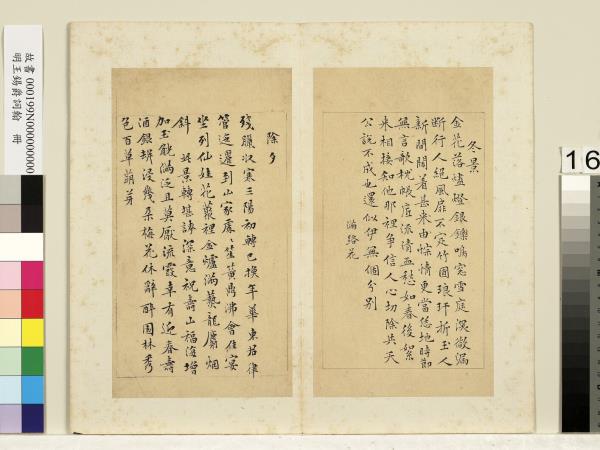 冬景
金花落燼燈銀鑠鳴窓雪庭深微漏
断行人絕風扉不定竹園琅玕折玉人
新間闊着甚来由悰情更當恁地時節
無言欹枕帳底流清血愁如春後絮
来相接知他那裡争信人心切除共天
公說不成也還似伊無個分別
滿路花
除夕
殘臘收寒三陽初轉已換年華東君律
管迤邐到山家處々笙簧鼎沸會佳宴
坐列仙娃花叢裡金爐滿爇龍麝烟
斜 此景轉堪誇深意祝壽山福海增
加玉觥滿泛且莫厭流霞幸有迎春壽
酒銀缾浸幾朵梅花休辭醉園林秀
色百草萌芽
故書 000199N000000000
明王錫爵詞翰 冊
16